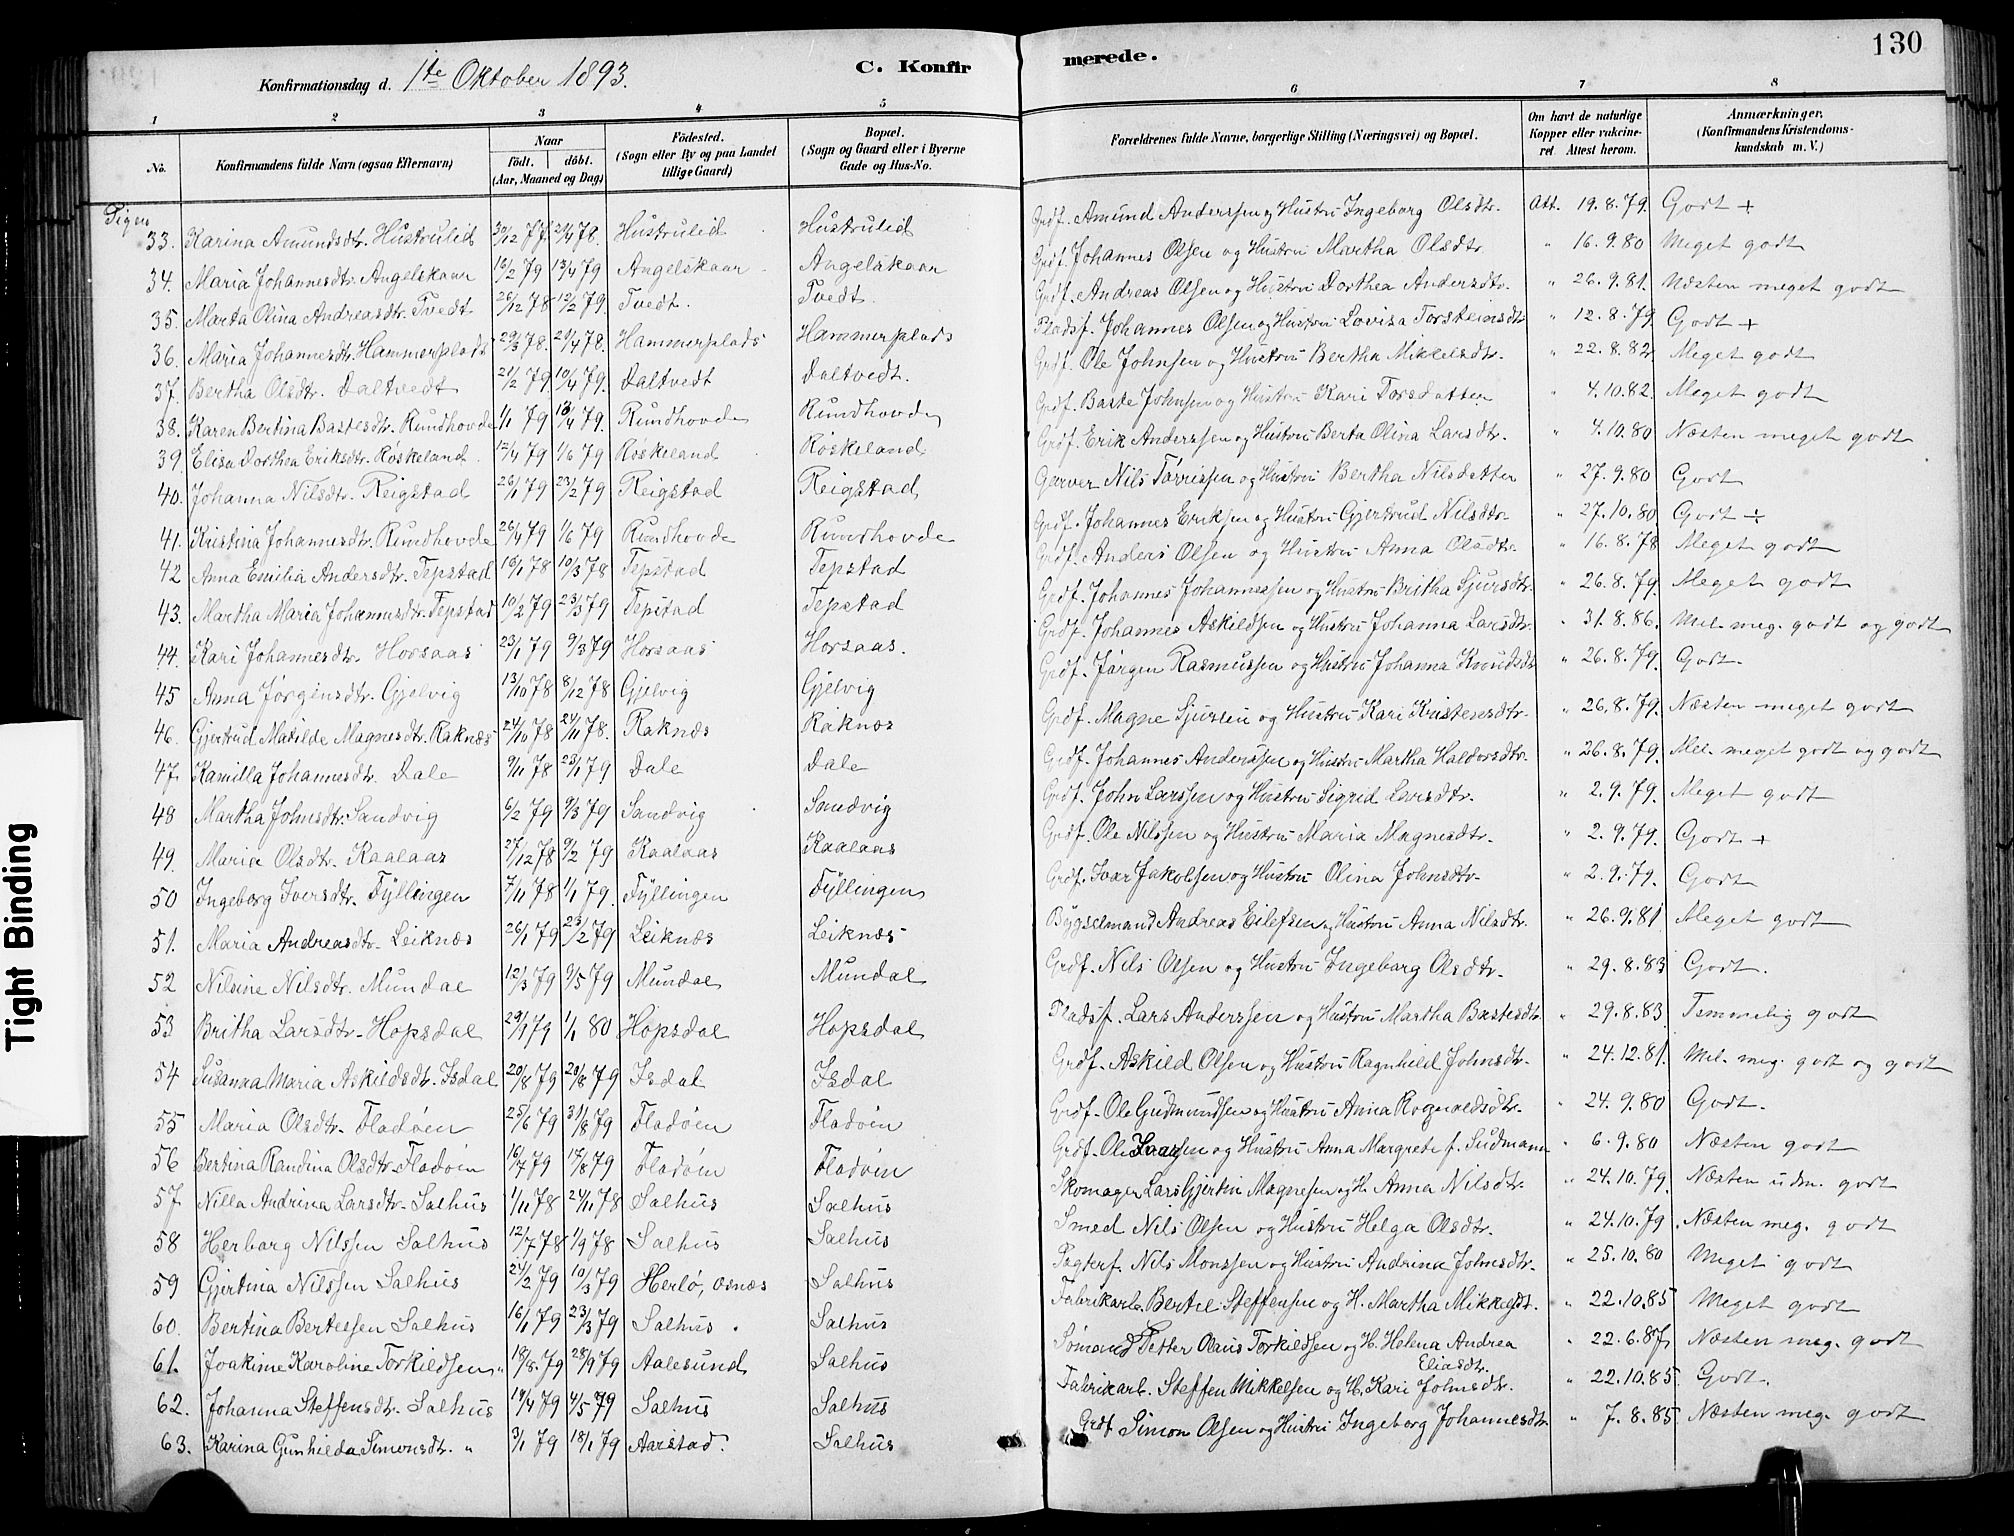 130
Konfirmationsdag d. 1te Oktober 1893. C. Konfirmerede.
1 2 3 4 5 6 7 8
No. Konfirmandens fulde Navn (ogsaa Efternavn) Naar födt. döbt. (Aar, Maaned og Dag) Födested. (Sogn eller By og paa Landet tillige Gaard) Bopæl. (Sogn og Gaard eller i Byerne Gade og Hus-No. Forældrenes fulde Navne, borgerlige Stilling (Næringsvei) og Bopæl. Om havt de naturlige Kopper eller vakcineret. Attest herom. Anmærkninger. (Konfirmandens Kristendomskundskab m. V.)
Piger
33. Karina Amundsdtr. Hustrulid 30/12 77 21/4 78. Hustrulid Hustrulid Grdf. Amund Anderssen og Hustru Ingeborg Olsdtr. Att. 19.8.79. Godt +
34. Maria Johannesdtr. Angelskaar 16/2 79 13/4 79 Angelskaar Angelskaar Grdf. Johannes Olsen og Hustru Martha Olsdtr. " 16.9.80 Meget godt
35. Marta Olina Andreasdtr. Tvedt 26/12 78 12/2 79. Tvedt. Tvedt. Grdf. Andreas Olsen og Hustru Dorthea Andersdtr. " 26.9.81. Næsten meget godt
36. Maria Johannesdtr. Hammersplads 29/3 78. 21/4 78. Hammersplads Hammersplads Pladsf. Johannes Olsen og Hustru Lovisa Torsteinsdtr " 12.8.79 Godt +
37. Bertha Olsdtr. Daltvedt 21/2 79. 10/4 79. Daltvedt Daltvedt. Grdf. Ole Johnsen og Hustru Bertha Mikkelsdtr. " 22.8.82 Meget godt
38. Karen Bertina Bastesdtr. Rundhovde 1/1 79 13/4 79. Rundhovde Rundhovde Grdf. Baste Johnsen og Hustru Kari Torsdatter " 4.10.82. Meget godt
39. Elisa Dorthea Eriksdtr. Røskeland 12/4 79 1/6 79 Røskeland Røskeland. Grdf. Erik Anderssen og Hustru Berta Olina Larsdtr. " 4.10.80 Næsten meget godt
40. Johanna Nilsdtr. Reigstad 26/1 79 23/2 79 Reigstad Reigstad Garver Nils Tørrissen og Hustru Bertha Nilsdatter " 27.9.80 Godt
41. Kristina Johannesdtr. Rundhovde 26/4 79 1/6 79 Rundhovde Rundhovde Grdf. Johannes Eriksen og Hustru Gjertrud Nilsdtr. " 27.10.80 Godt +
42 Anna Emilia Andersdtr. Tepstad 16/1 78 10/3 78 Tepstad Tepstad Grdf. Anders Olsen og Hustru Anna Olsdtr. " 16.8.78 Meget godt
43. Martha Maria Johannesdtr. Tepstad 10/2 79 23/3 79 Tepstad Tepstad Grdf. Johannes Johannessen og Hustru Britha Sjursdtr. " 26.8.79. Meget godt
44. Kari Johannesdtr. Horsaas 23/1 79 9/3 79 Horsaas Horsaas. Grdf. Johannes Askildsen og Hustru Johanna Larsdtr. " 31.8.86. Mel. meg. godt og godt
45 Anna Jørgensdtr. Gjelvig 13/10 78 8/12 78 Gjelvig Gjelvig Grdf. Jørgen Rasmussen og Hustru Johanna Knudsdtr " 26.8.79. Godt.
46. Gjertrud Matilde Magnesdtr. Raknæs 24/10 78 24/11 78. Raknæs Raknæs Grdf. Magne Sjursen og Hustru Kari Kristensdtr. " 26.8.79. Næsten meget godt
47. Kamilla Johannesdtr. Dale 9/11 78 23/1 79 Dale Dale Grdf. Johannes Anderssen og Hustru Martha Haldorsdtr. " 26.8.79. Mel. meget godt og godt
48 Martha Johnsdtr. Sandvig 6/2 79 9/3 79 Sandvig Sandvig Grdf. John Larssen og Hustru Sigrid Larsdtr. " 2.9.79. Meget godt
49. Maria Olsdtr. Kaalaas 27/12 78 9/2 79 Kaalaas Kaalaas Grdf. Ole Nilssen og Hustru Maria Magnesdtr. " 2.9.79. Godt +
50 Ingeborg Iversdtr. Fyllingen 7/11 78 1/1 79. Fyllingen Fyllingen Grdf. Ivar Jakobsen og Hustru Olina Johnsdtr. " 2.9.79. Godt
51. Maria Andreasdtr. Leiknæs 26/1 79 23/2 79 Leiknæs Leiknæs Bygselmand Andreas Eilefsen og Hustru Anna Nilsdtr " 26.9.81 Meget godt
52 Nilsine Nilsdtr. Mundal 12/3 79 9/5 79 Mundal Mundal Grdf. Nils Olsen og Hustru Ingeborg Olsdtr. " 29.8.83 Godt.
53 Britha Larsdtr. Hopsdal 29/1 79 1/1 80 Hopsdal Hopsdal Pladsf. Lars Anderssen og Hustru Martha Bastesdtr. " 29.8.83. Temmelig godt
54 Susanna Maria Askildsdtr. Isdal 20/8 79 20/8 79 Isdal Isdal Grdf. Askild Olsen og Hustru Ragnhild Johnsdtr. " 24.12.81. Mel. meg. godt og godt
55 Maria Olsdtr. Fladøen 25/6 79 31/8 79 Fladøen Fladøen Grdf. Ole Gudmundsen og Hustru Anna Rognaldsdtr. " 24.9.80 Godt.
56 Bertina Randina Olsdtr. Fladøen 16/7 79 17/8 79 Fladøen Fladøen Grdf. Ole Larsen og Hustru Anna Margrete f. Sudmann " 6.9.80 Næsten godt
57. Nilla Andrina Larsdtr. Salhus 1/11 78 24/11 78 Salhus Salhus Skomager Lars Gjertin Magnesen og H. Anna Nilsdtr. " 24.10.79. Næsten udm. godt
58 Herborg Nilssen Salhus 12/7 78 1/9 78 Salhus Salhus Smed Nils Olsen og Hustru Helga Olsdtr. " 24.10.79. Næsten meg. godt
59 Gjertina Nilssen Salhus 24/2 79 10/3 79 Herlø, Osnæs Salhus Pagterf. Nils Monssen og Hustru Andrina Johnsdtr. " 25.10.80 Meget godt
60. Bertina Bertelsen Salhus 16/1 79 23/3 79 Salhus. Salhus Fabrikarb. Bertel Steffensen og H. Martha Mikkelsdtr. " 22.10.85 Meget godt
61. Joakime Karoline Torkildsen " 18/8 79 28/9 79 Aalesund Salhus Sømand Petter Olaus Torkildsen og H. Helena Andrea Eliasdtr. " 22.6.87 Næsten meg. godt
62. Johanna Steffensdtr. Salhus 14/4 79 4/5 79 Salhus Salhus Fabrikarb. Steffen Mikkelsen og H. Kari Johnsdtr. " 22.10.85. Godt.
63. Karina Gunhilda Simonsdtr. " 3/1 79 18/1 79 Aarstad. Salhus Grdf Simon Olsen og Hustru Ingeborg Johannesdtr. " 7.8.85 Næsten meg. godt
Tight Binding